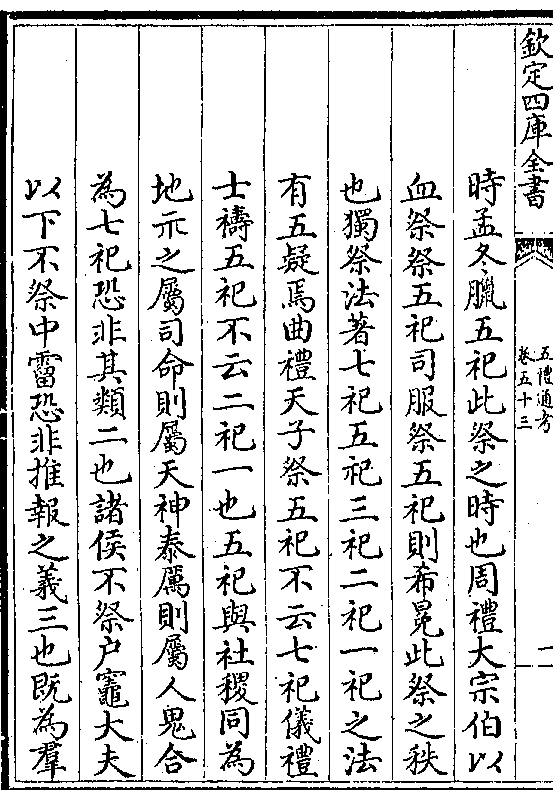 欽定四庫全書
五禮通考
卷五十三
一
時孟冬臘五祀此祭之時也周禮大宗伯以
血祭祭五祀司服祭五祀則希冕此祭之秩
也獨祭法著七祀五祀三祀二祀一祀之法
有五疑焉曲禮天子祭五祀不云七祀儀禮
士禱五祀不云二祀一也五祀與社稷同為
地示之屬司命則屬天神泰厲則屬人鬼合
為七祀恐非其類二也諸侯不祭户竈大夫
以下不祭中霤恐非推報之義三也既為羣